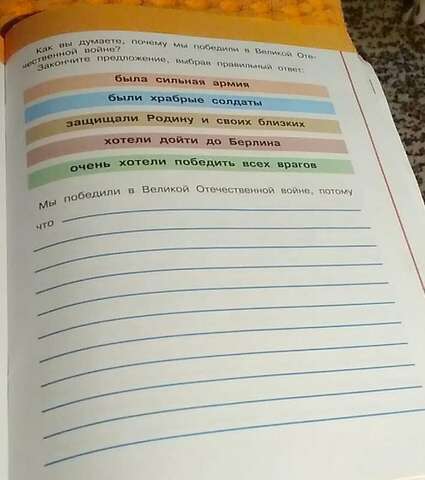 Как вы думаете, почему мы победили в Великой Оте-
чественной войне?
Закончите предложение, выбрав правильный ответ:
была сильная армия
были храбрые солдаты
защищали Родину и своих близких
хотели дойти до Берлина
очень хотели победить всех врагов
Мы победили в Великой Отечественной войне, потому
что